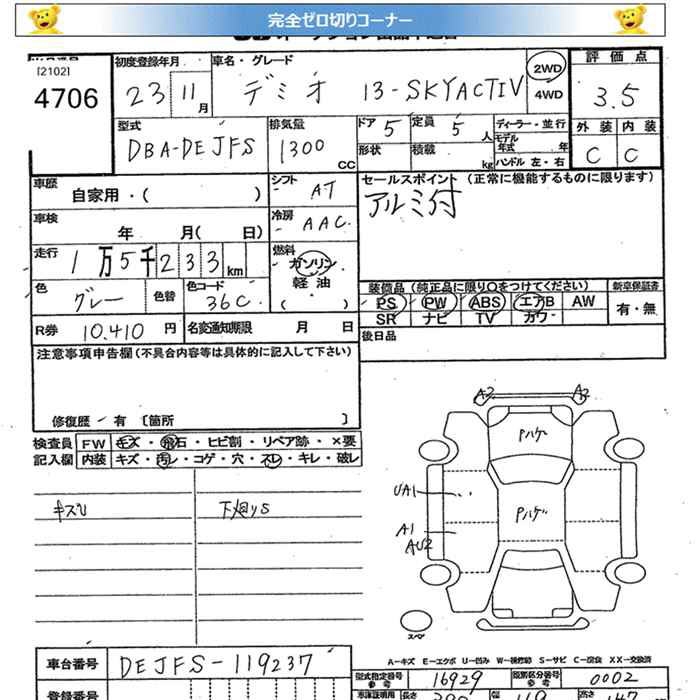 完全ゼロ切りコーナー
[2102]
4706
初度登録年月
23 11 月
車名・グレード
デミオ 13-SKYACTIV
2WD
4WD
評価点
3.5
型式
DBA-DEJFS
排気量
1300 CC
ドア 5
定員 5 人
形状
積載 kg
ディーラー・並行
モデル年式 年
ハンドル 左・右
外装 内装
C C
車歴
自家用・( )
シフト
AT
セールスポイント (正常に機能するものに限ります)
アルミ付
車検
年 月( 日)
冷房
AAC
走行
1万5千233km
燃料
ガソリン
軽油
( )
色
グレー
色替
色コード
36C
装備品 (純正品に限り○をつけてください)
新車保証書
PS PW ABS エアB AW
有・無
SR ナビ TV カワ
R券 10.410 円
名変通知期限 月 日
後日品
注意事項申告欄(不具合内容等は具体的に記入して下さい)
修復歴・有 〔箇所 〕
検査員
記入欄
FW キズ・飛石・ヒビ割・リペア跡・×要
内装 キズ・汚レ・コゲ・穴・スレ・キレ・破レ
キズU
下廻りS
A2 A2
Pハゲ
UA1
Pハゲ
A1
AU2
スペア
A-キズ E-エクボ U-凹み W-補修跡 S-サビ C-腐食 XX-交換済
車台番号 DEJFS-119237
型式指定番号
参考
16929
類別区分番号
参考
0002
登録番号
車庫証明用
長さ